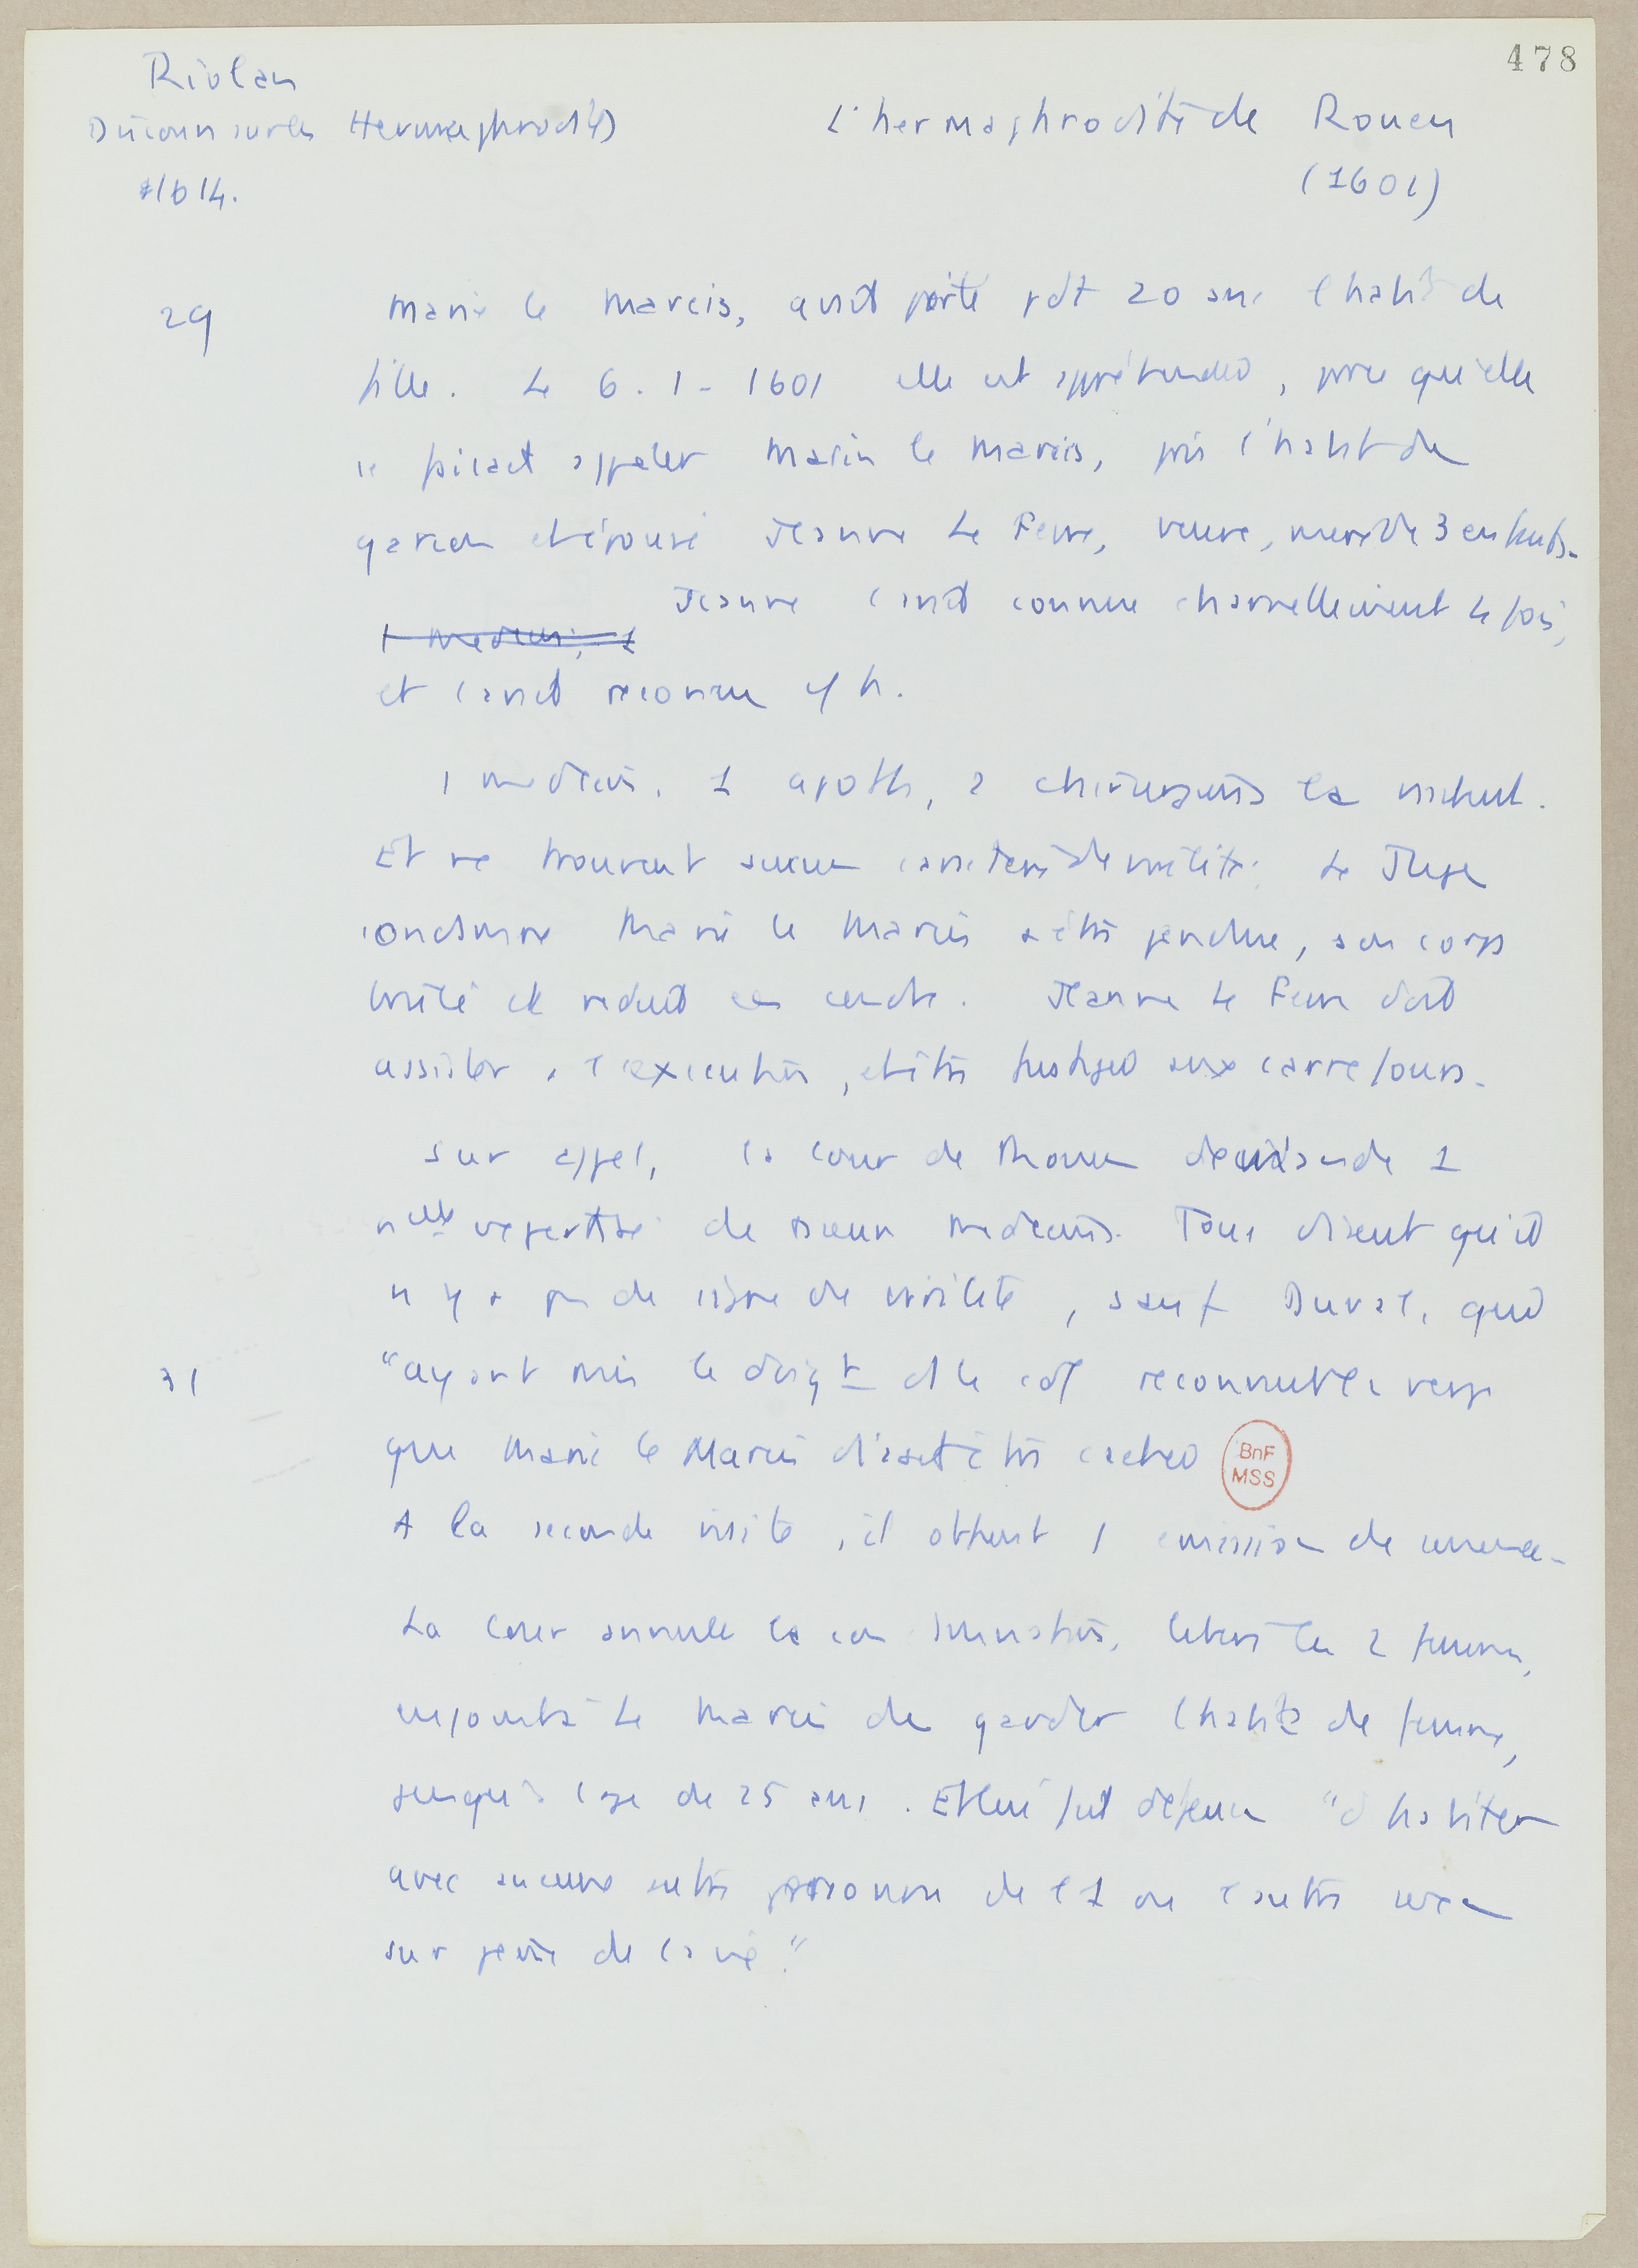 478
Riolan
Discours sur les Hermaphrodites
L'hermaphrodite de Rouen
1614.
(1601)
29
Marie le Marcis, avait porté pdt 20 ans l'habit de
fille. Le 6.1-1601 elle est appréhendée, parce qu'elle
se faisait appeler Marin le Marcis, pris l'habit de
garçon et épousé Jeanne Le Fevre, veuve, mère de 3 enfants.
Jeanne l'avait connue charnellement 4 fois,
1 médecin, 1
et l'avait reconnu h.
1 médecin, 1 apoth, 2 chirurgiens la visitent.
Et ne trouvent aucun caractère de virilité. Le Juge
condamne Marie le Marcis à être pendue, son corps
brûlé et réduit en cendre. Jeanne Le Fevre doit
assister à l'exécution, et être fustigée aux carrefours.
Sur appel, la cour de Rouen demande 1
nelle expertise de médecins. Tous disent qu'il
n'y a pas de signe de virilité, sauf Duval, qui
31
"ayant mis le doigt ds le col reconnut la verge
que Marie le Marcis disait être cachée
BnF
MSS
A la seconde visite, il obtient 1 émission de semence.
La Cour annule la condamnation, libère les 2 femmes,
enjoint à Le Marcis de garder l'habit de femme,
jusqu'à l'âge de 25 ans. Et lui fut défendu "d'habiter
avec aucune autre personne de l'1 ou l'autre sexe
sur peine de la vie."